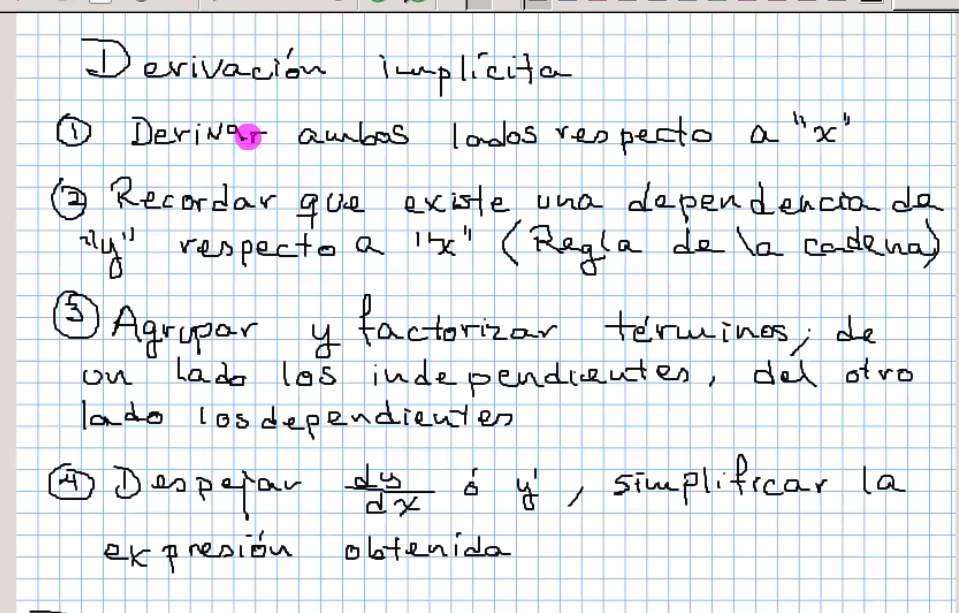 Derivación implícita
① Derivar ambos lados respecto a "x"
② Recordar que existe una dependencia de
"y" respecto a "x" (Regla de la cadena)
③ Agrupar y factorizar términos; de
un lado los independientes, del otro
lado los dependientes
④ Despejar dy/dx ó y', simplificar la
expresión obtenida